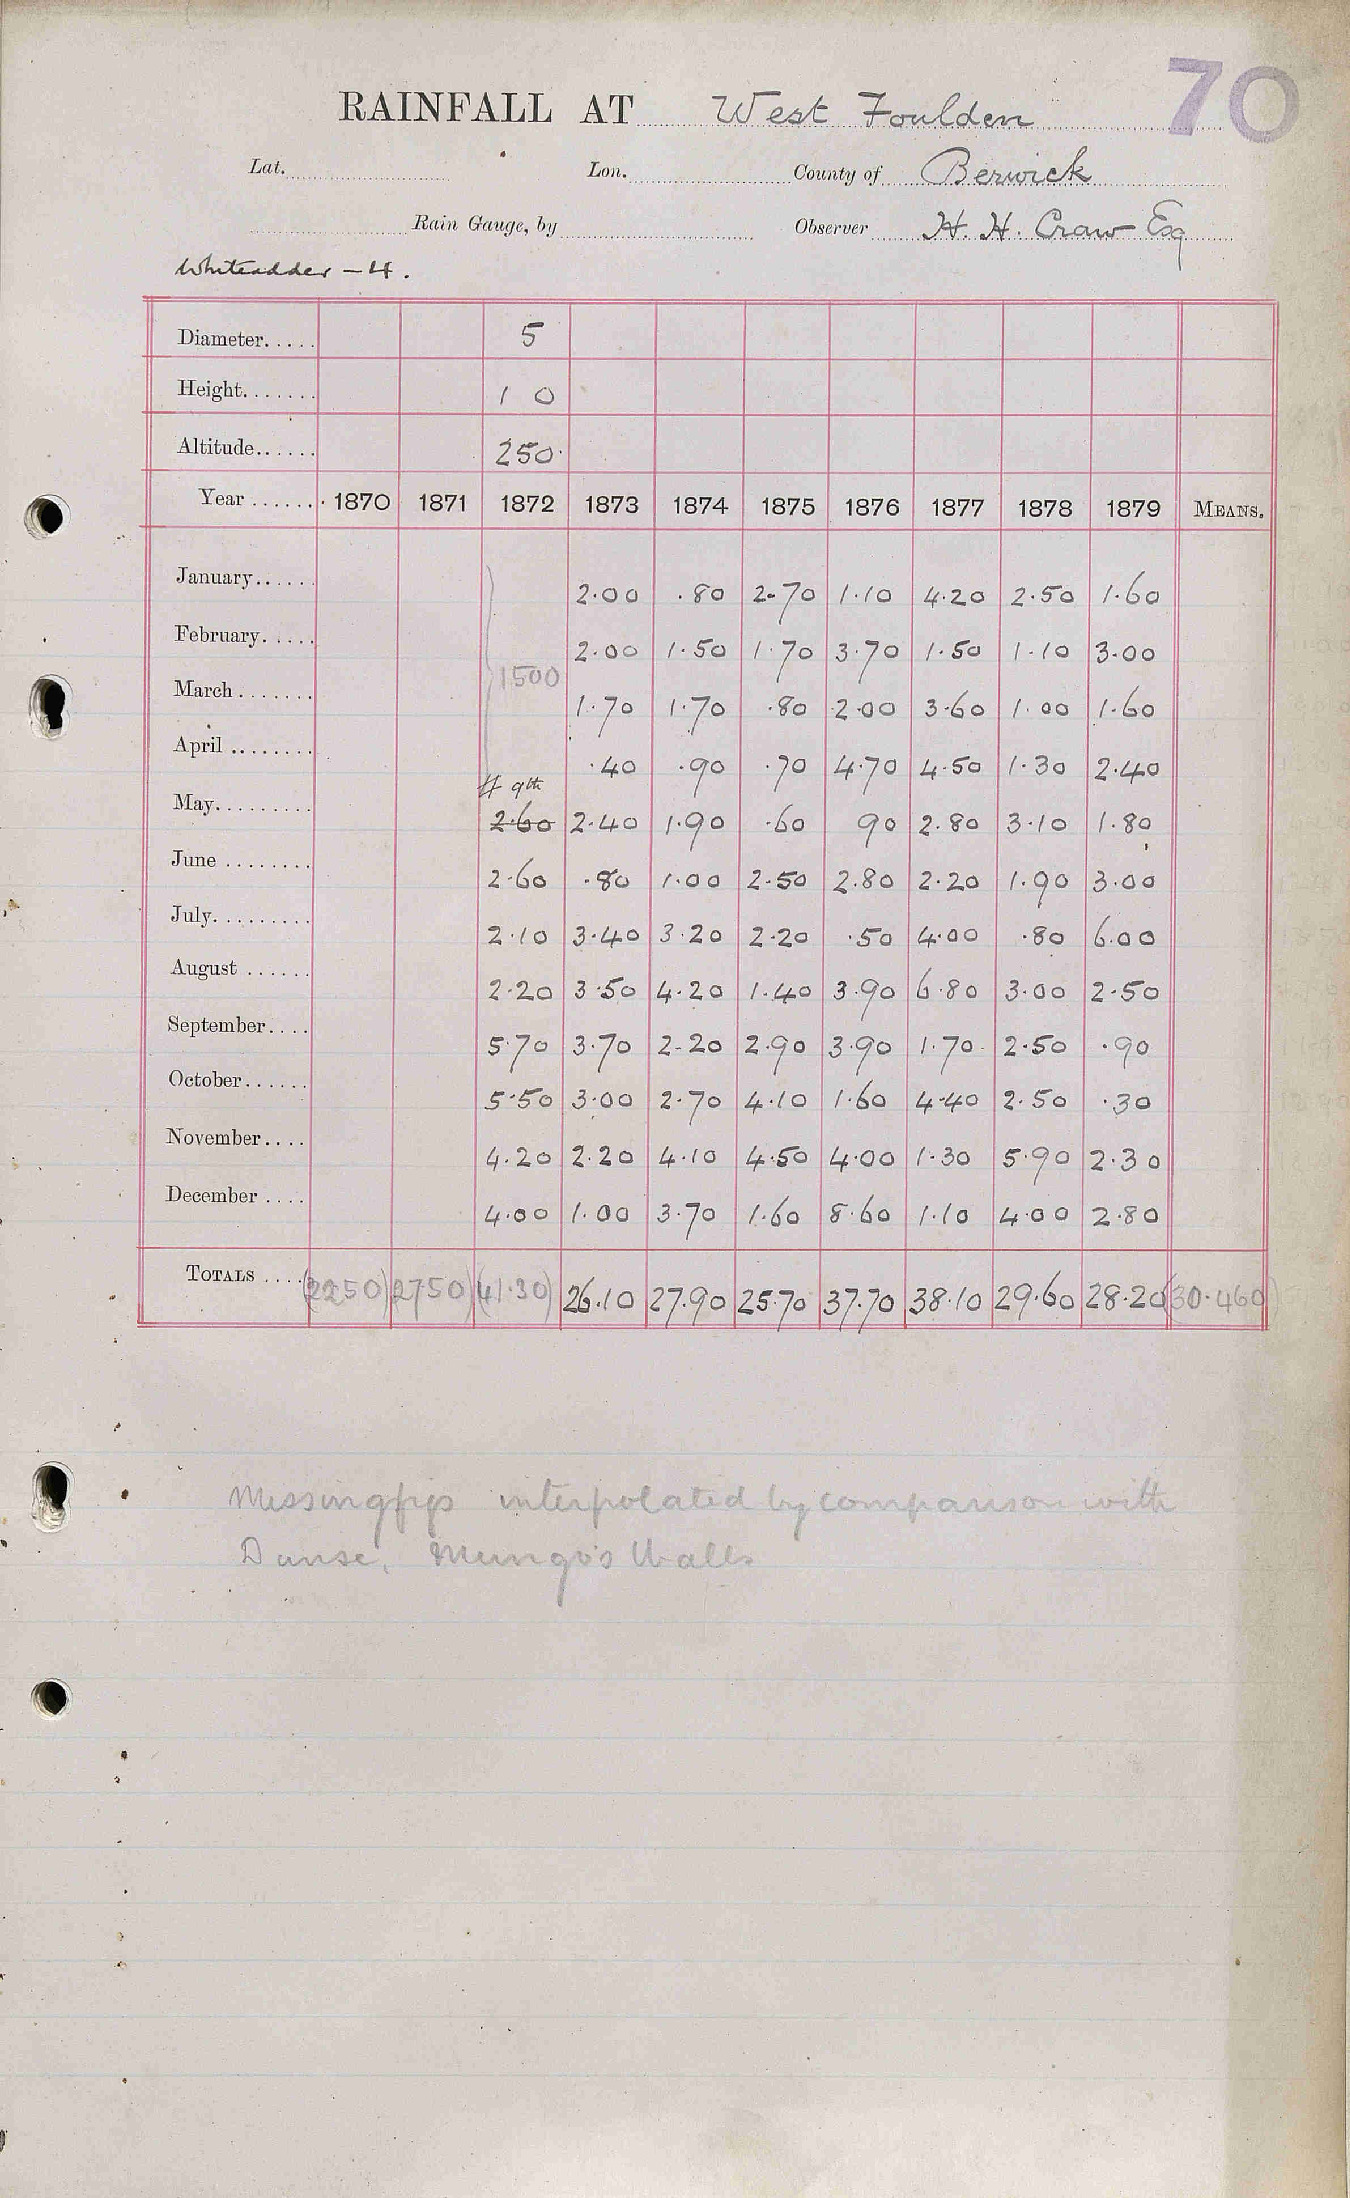 70
RAINFALL AT West Foulden
Lat. Lon. County of Berwick
Rain Gauge, by Observer H. H. Craw Esq
Whiteadder - 4.
Diameter..... 5
Height....... 1 0
Altitude...... 250.
Year ....... 1870 1871 1872 1873 1874 1875 1876 1877 1878 1879 MEANS.
January...... 2.00 .80 2.70 1.10 4.20 2.50 1.60
February..... 2.00 1.50 1.70 3.70 1.50 1.10 3.00
1500
March....... 1.70 1.70 .80 2.00 3.60 1.00 1.60
April ........ .40 .90 .70 4.70 4.50 1.30 2.40
# 9th
May......... 2.60 2.40 1.90 .60 90 2.80 3.10 1.80
June ........ 2.60 .80 1.00 2.50 2.80 2.20 1.90 3.00
July......... 2.10 3.40 3.20 2.20 .50 4.00 .80 6.00
August ...... 2.20 3.50 4.20 1.40 3.90 6.80 3.00 2.50
September.... 5.70 3.70 2.20 2.90 3.90 1.70 2.50 .90
October...... 5.50 3.00 2.70 4.10 1.60 4.40 2.50 .30
November.... 4.20 2.20 4.10 4.50 4.00 1.30 5.90 2.30
December .... 4.00 1.00 3.70 1.60 8.60 1.10 4.00 2.80
TOTALS .... (2250) (2750) (41.30) 26.10 27.90 25.70 37.70 38.10 29.60 28.20 (30.460)
Missing figs interpolated by comparison with
Dunse, Mungo's Walls